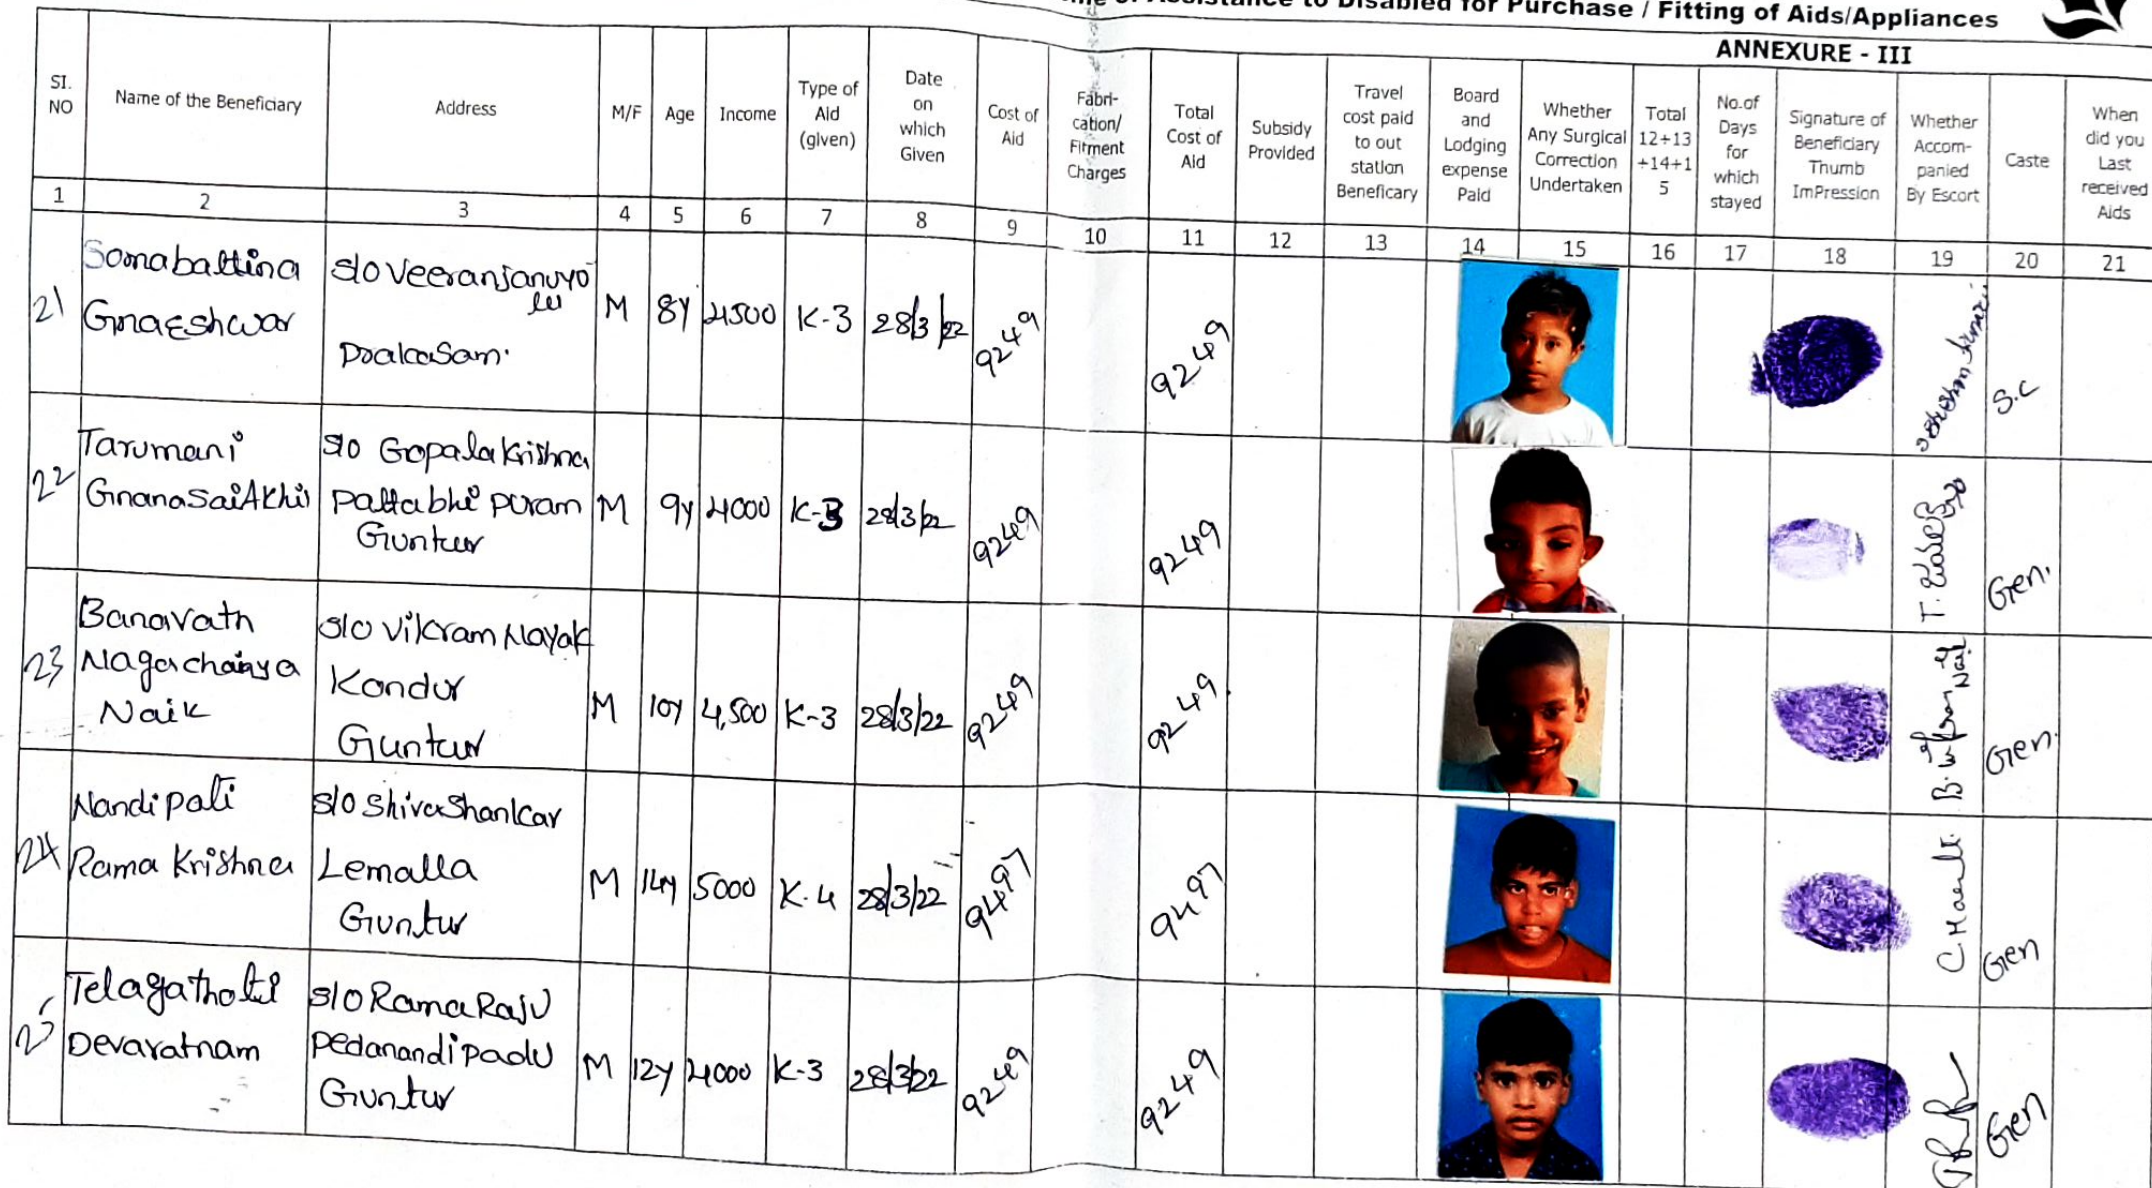 of Assistance to Disabled for Purchase / Fitting of Aids/Appliances
ANNEXURE - III
SI. NO | Name of the Beneficiary | Address | M/F | Age | Income | Type of Aid (given) | Date on which Given | Cost of Aid | Fabri-cation/ Fitment Charges | Total Cost of Aid | Subsidy Provided | Travel cost paid to out station Beneficary | Board and Lodging expense Paid | Whether Any Surgical Correction Undertaken | Total 12+13 +14+1 5 | No.of Days for which stayed | Signature of Beneficiary Thumb ImPression | Whether Accom-panied By Escort | Caste | When did you Last received Aids
1 2 3 4 5 6 7 8 9 10 11 12 13 14 15 16 17 18 19 20 21
21 Somabattina Gnaeshwar S/o Veeranjanuyo lu Prakasam. M 8Y 4500 K-3 28/3/22 9249 9249 S.C
22 Tarumani GnanaSaiAkhil S/o Gopalakrishna Pattabhi puram Guntur M 9Y 4000 K-3 28/3/22 9249 9249 Gen.
23 Banavath Nagachaisya Naik S/o Vikram Nayak Kondur Guntur M 10Y 4,500 K-3 28/3/22 9249 9249 Gen.
24 Nandipati Rama Krishna S/o Shivashankar Lemalla Guntur M 14Y 5000 K-4 28/3/22 9497 9497 Gen
25 Telagathoti Devaratnam S/o Rama Raju Pedanandipadu Guntur M 12Y 4000 K-3 28/3/22 9249 9249 Gen